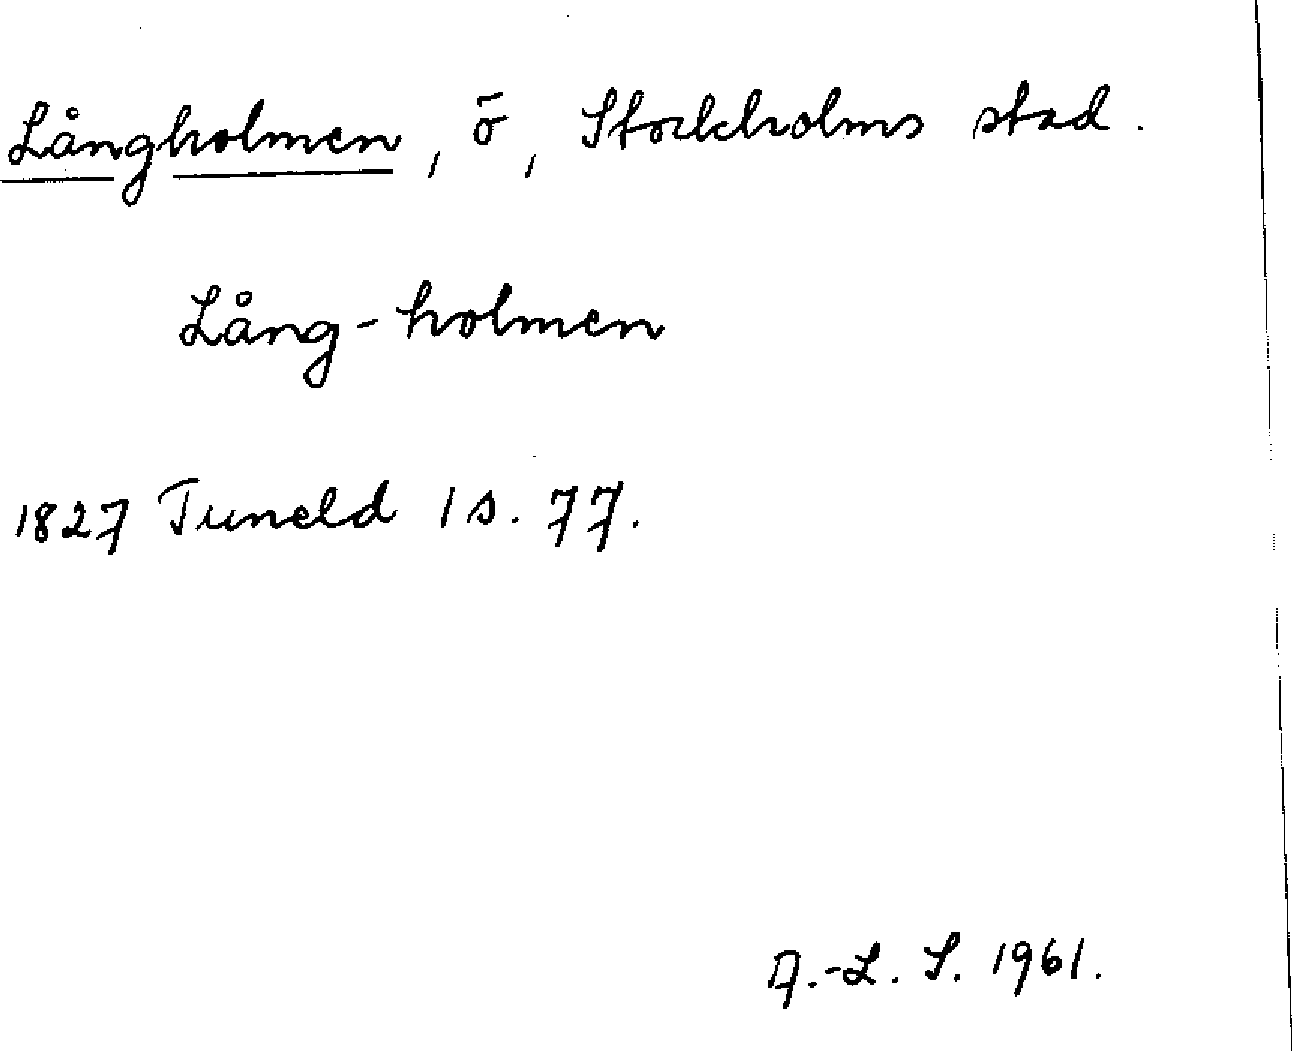 Långholmen, ö, Stockholms stad.
Lång-holmen
1827 Tuneld 1 s. 77.
A.-L. S. 1961.